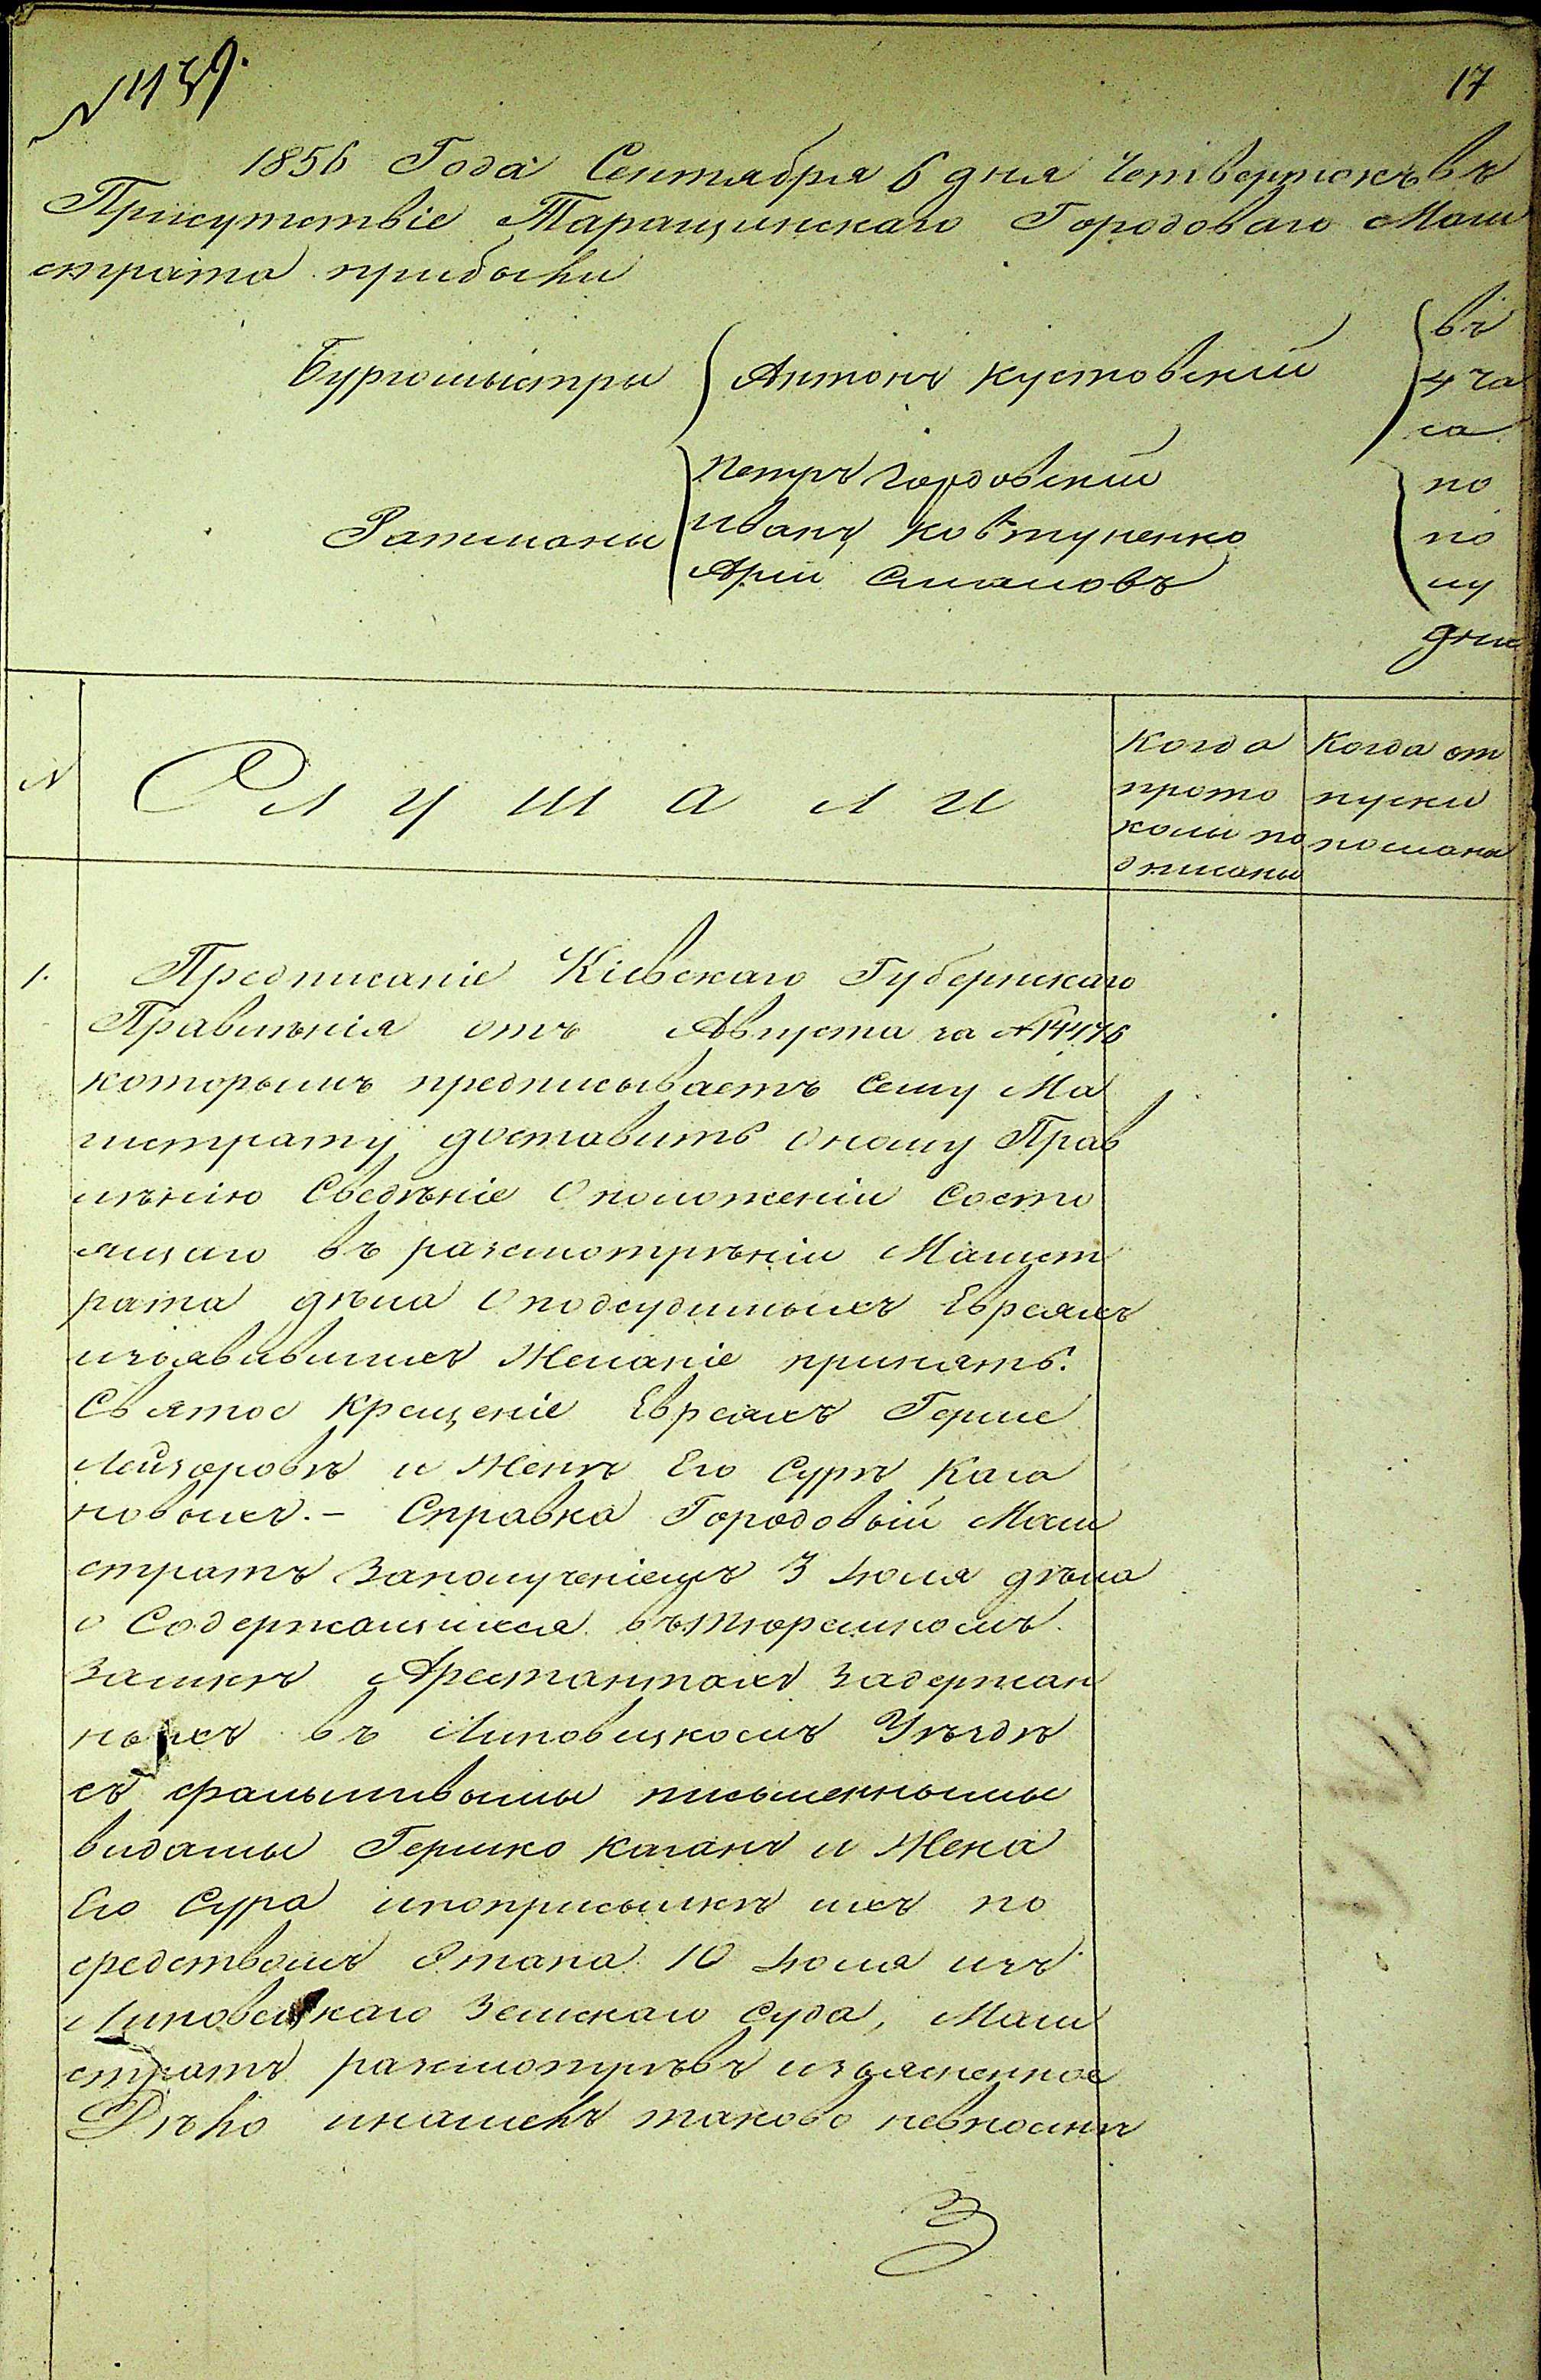 N 1139.
17
1856 Года Сентября 6 дня Четвертокъ въ
Присутствіе Таращинскаго Городоваго Маги
страта прибыли
Бургомистры
Антонъ Кустовскій
въ
4 ча
са
Ратманы
Петръ Гордовскій
Иванъ Ковтуненко
Арій Смаловъ
по
по
лу
дни
N
Слушали
Когда
прото
колы по
дписаны
Когда от
пуски
посланы
1.
Предписаніе Кіевскаго Губернскаго
Правленія отъ Августа за N 14476
которымъ предписываетъ сему Ма
гистрату доставить оному Прав
лѣнію Сведѣніе О положеніи Состо
ящаго въ разсмотрѣніи Магист
рата дѣла О подсудимыхъ Евреяхъ
изъявившихъ Желаніе принять
Святое Крещеніе Евреяхъ Герше
Лейзоровѣ и Женѣ Его Сурѣ Кага
новыхъ. - Справка Городовый Маги
стратъ Заполученіемъ 3 Іюля дѣла
о Содержащихся въ тюремномъ
Замкѣ Арестантахъ Задержан
ныхъ въ Липовецкомъ Уѣздѣ
съ фальшивымы письменнымы
видамы Гершко Каганъ и Жена
Его Сура ипоприсылкѣ ихъ по
средствомъ Этапа 10 Іюля изъ
Липовецкаго Земскаго Суда, Маги
стратъ разсмотрѣвъ изъясненное
Дѣло инашелъ таково невполнѣ